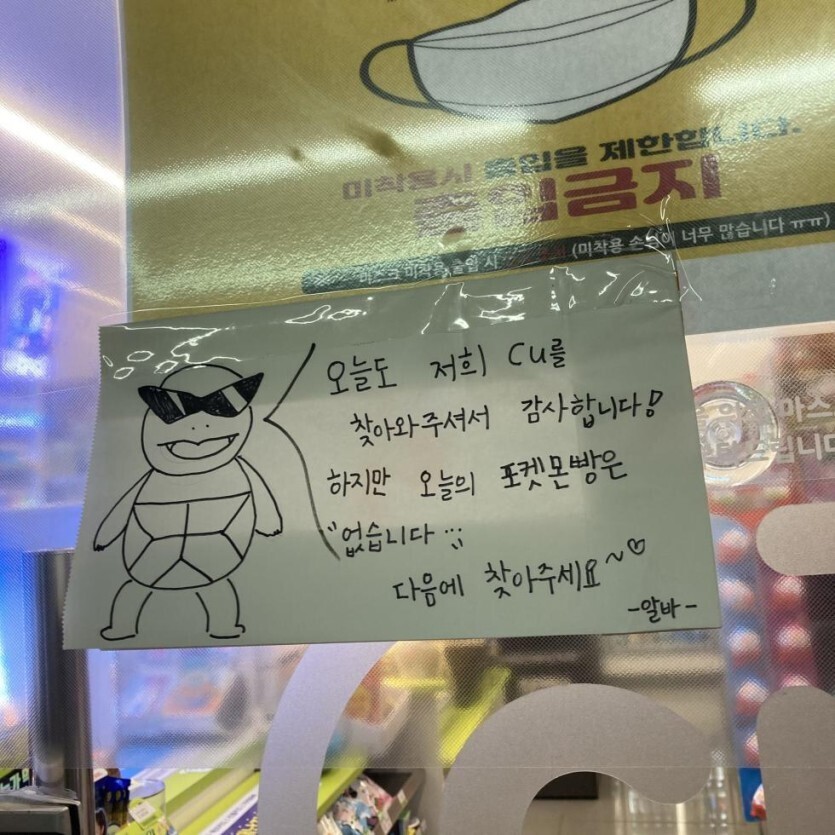 미착용시 출입을 제한합니다.
출입금지
마스크 미착용 출입 시 (미착용 손님이 너무 많습니다 ㅠㅠ)
오늘도 저희 CU를
찾아와주셔서 감사합니다!
하지만 오늘의 포켓몬빵은
"없습니다 ;;;
다음에 찾아주세요~♡
-알바-